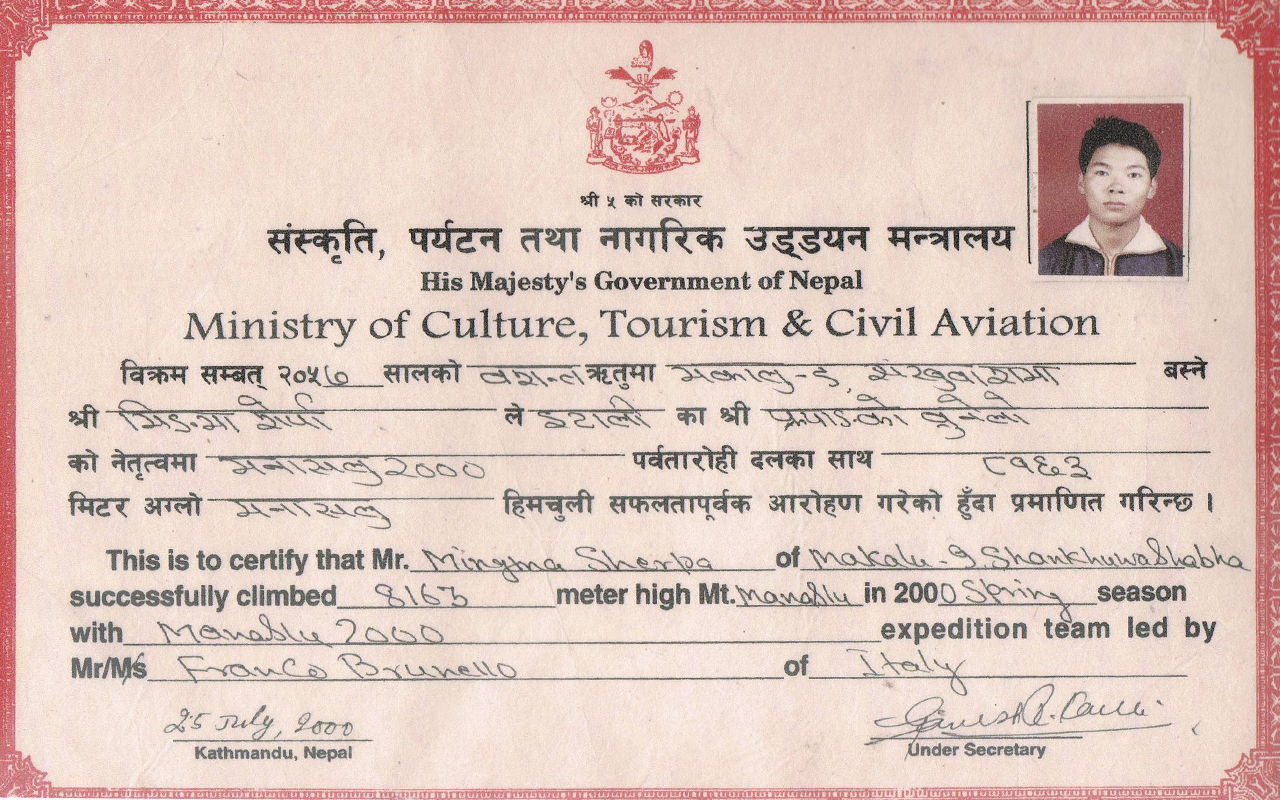 श्री ५ को सरकार
संस्कृति, पर्यटन तथा नागरिक उड्डयन मन्त्रालय
His Majesty's Government of Nepal
Ministry of Culture, Tourism & Civil Aviation
विक्रम सम्बत् २०५७ सालको ऋतुमा मकालु-९, संखुवाशभा बस्ने
श्री मिङमा शेर्पा ले इटाली का श्री
को नेतृत्वमा मनासलु 2000 पर्वतारोही दलका साथ ८१६३
मिटर अग्लो मनासलु हिमचुली सफलतापूर्वक आरोहण गरेको हुँदा प्रमाणित गरिन्छ ।
This is to certify that Mr. Mingma Sherpa of Makalu-9, Shankhuwashabha
successfully climbed 8163 meter high Mt. Manaslu in 2000 Spring season
with Manaslu 2000 expedition team led by
Mr/Ms Franco Brunello of Italy
25 July, 2000
Kathmandu, Nepal
Under Secretary